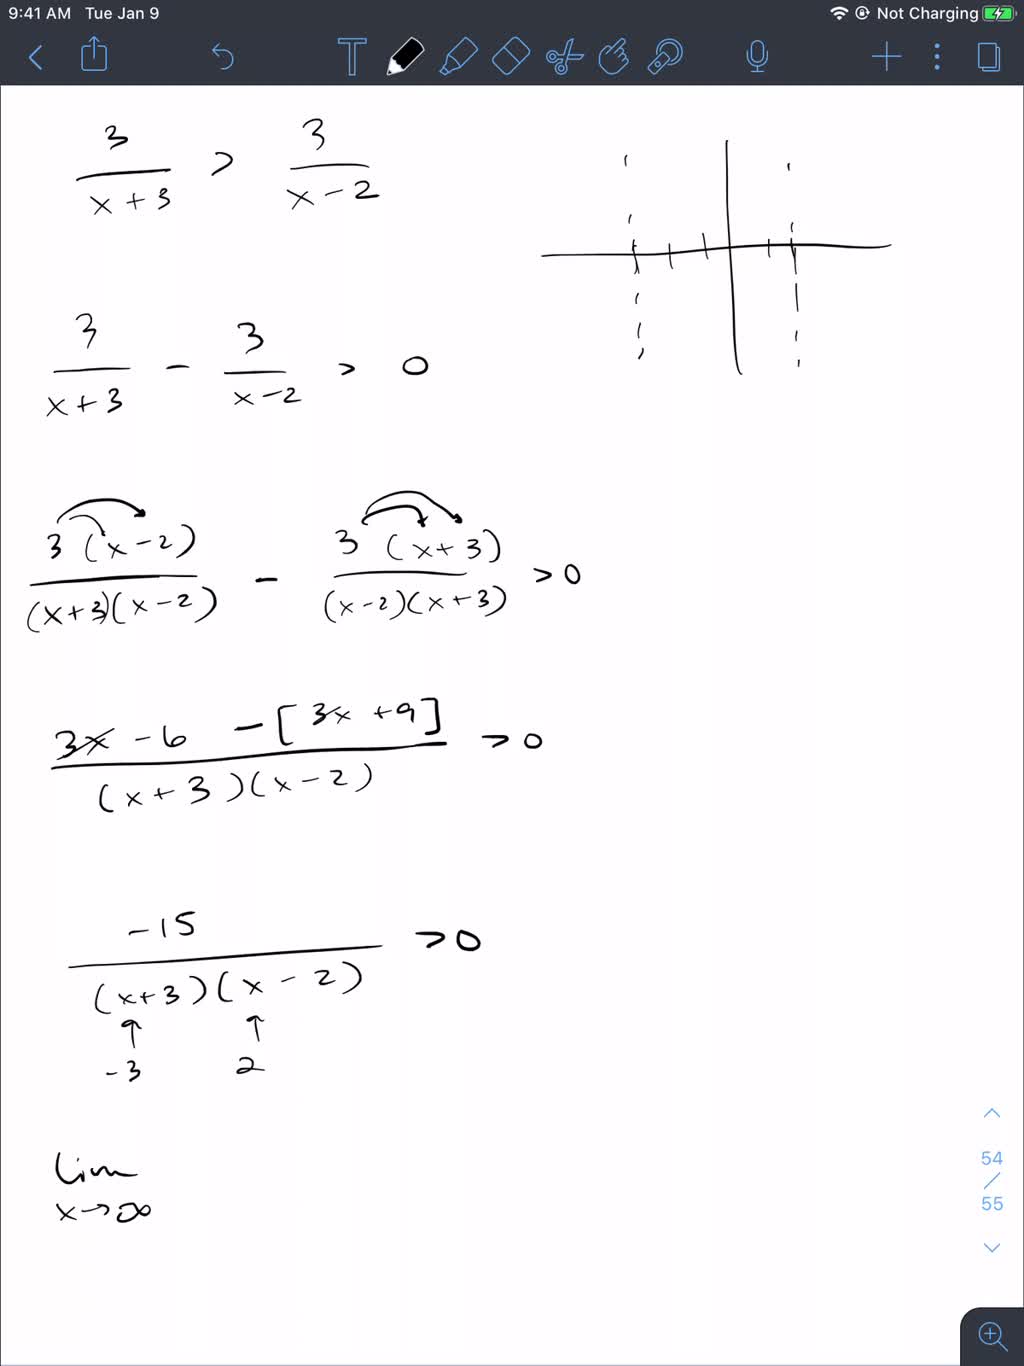 9:41 AM Tue Jan 9 Not Charging
3/(x+3) > 3/(x-2)
3/(x+3) - 3/(x-2) > 0
3(x-2)/((x+3)(x-2)) - 3(x+3)/((x-2)(x+3)) >0
(3x-6 -[3x+9])/((x+3)(x-2)) >0
-15/((x+3)(x-2)) >0
-3 2
lim
x→∞
54
/
55